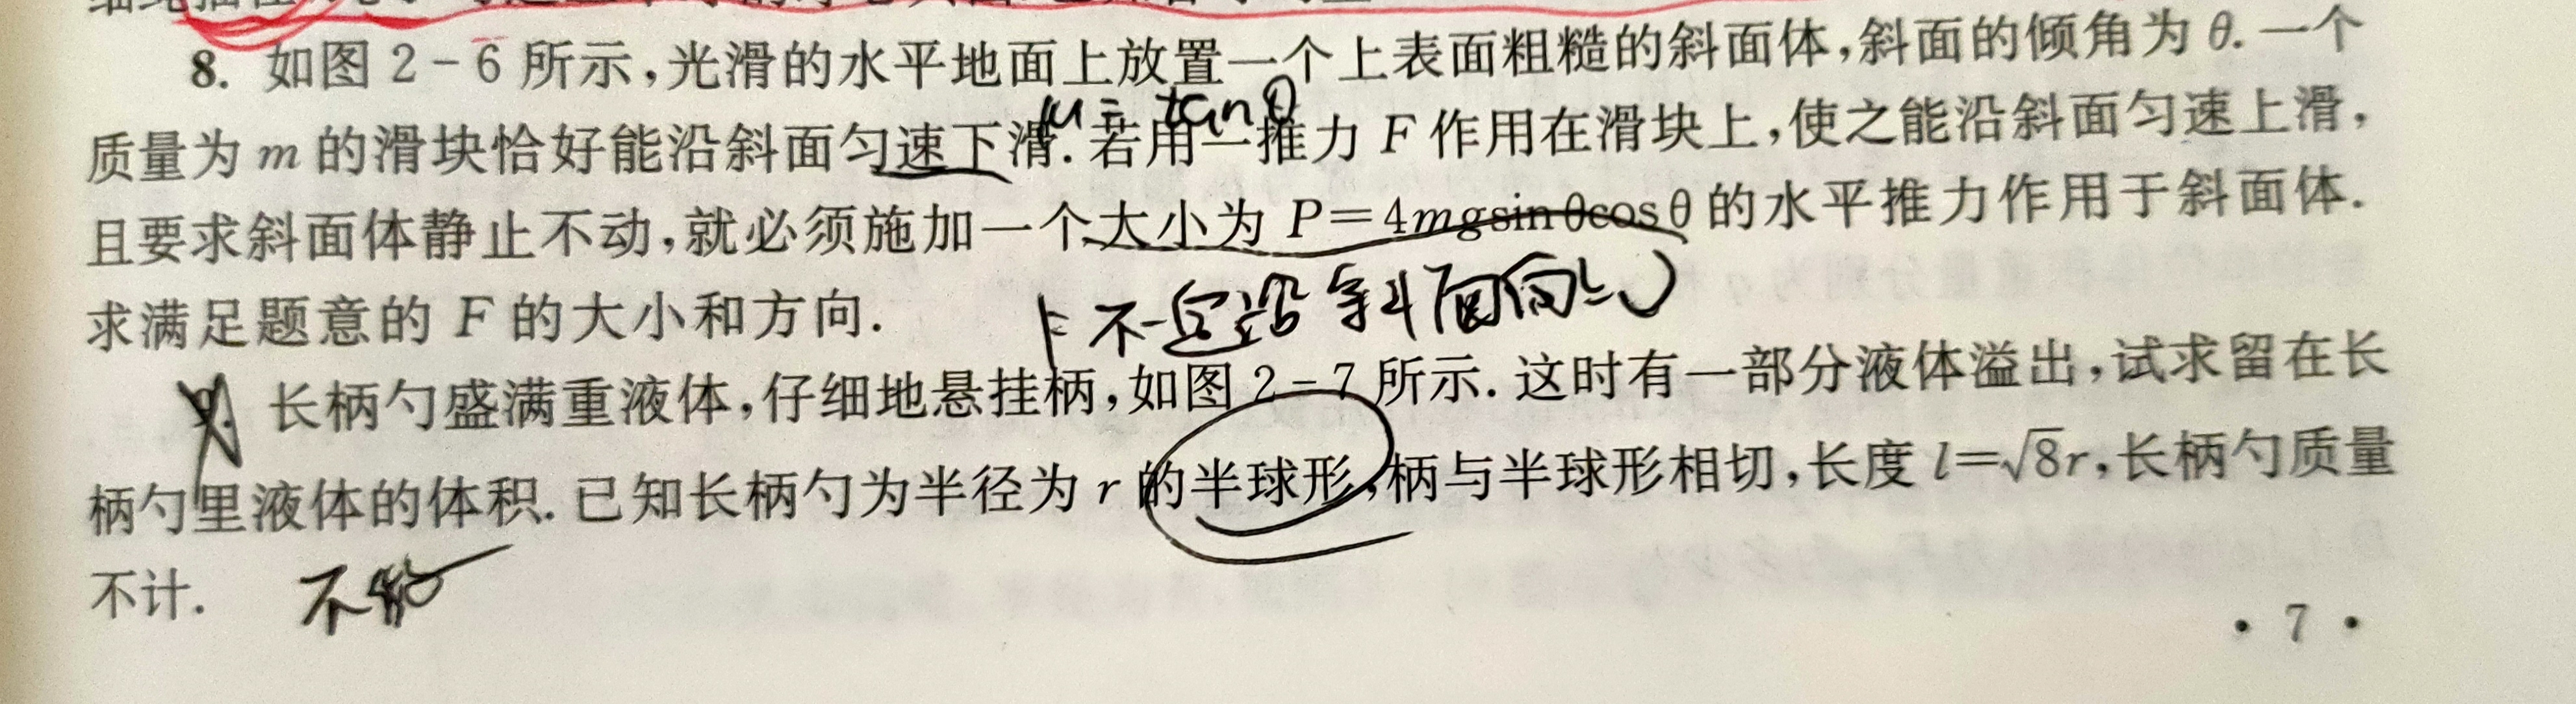 8. 如图 2-6 所示,光滑的水平地面上放置一个上表面粗糙的斜面体,斜面的倾角为 θ. 一个
μ = tanθ
质量为 m 的滑块恰好能沿斜面匀速下滑. 若用一推力 F 作用在滑块上,使之能沿斜面匀速上滑,
且要求斜面体静止不动,就必须施加一个大小为 P=4mgsinθcosθ 的水平推力作用于斜面体.
求满足题意的 F 的大小和方向.
F不一定沿斜面向上
9. 长柄勺盛满重液体,仔细地悬挂柄,如图 2-7 所示. 这时有一部分液体溢出,试求留在长
柄勺里液体的体积. 已知长柄勺为半径为 r 的半球形,柄与半球形相切,长度 l=√8r,长柄勺质量
不计.
· 7 ·